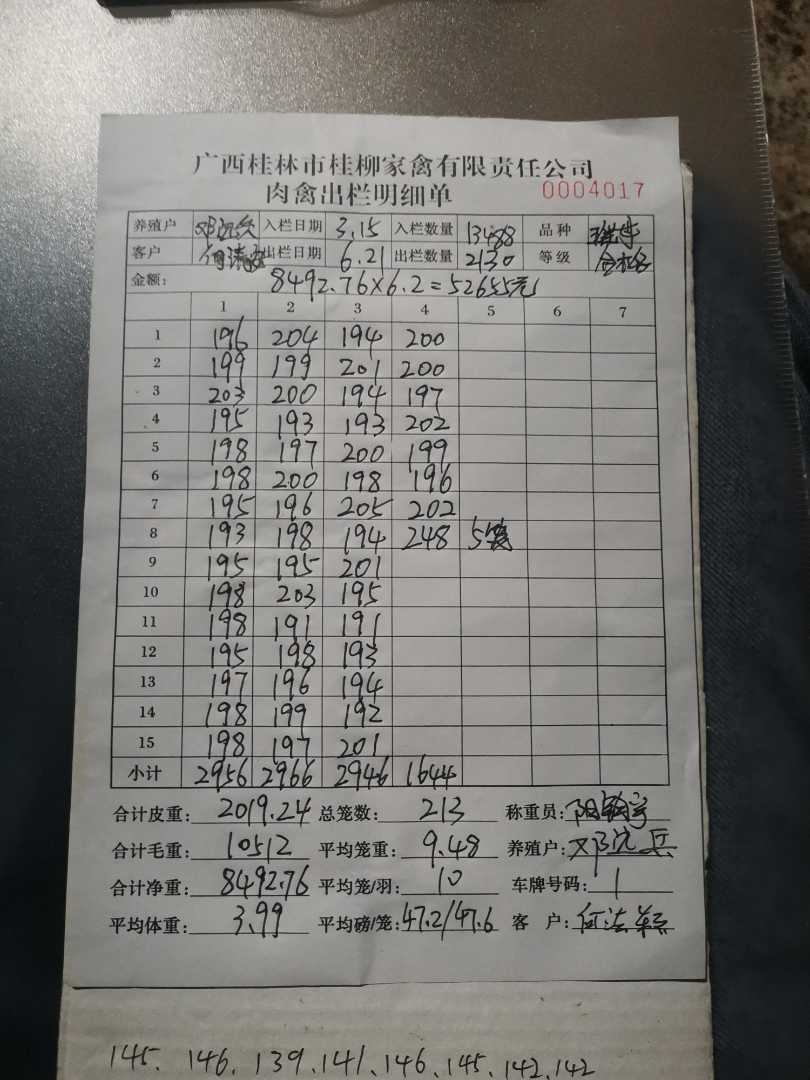 广西桂林市桂柳家禽有限责任公司
肉禽出栏明细单 0004017
养殖户 入栏日期 3.15 入栏数量 13488 品种
客户 出栏日期 6.21 出栏数量 2130 等级 合格
金额: 8492.76×6.2=52655元
1 2 3 4 5 6 7
1 196 204 194 200
2 199 199 201 200
3 203 200 194 197
4 195 193 193 202
5 198 197 200 199
6 198 200 198 196
7 195 196 205 202
8 193 198 194 248 5笼
9 195 195 201
10 198 203 195
11 198 191 191
12 195 198 193
13 197 196 194
14 198 199 192
15 198 197 201
小计 2956 2966 2946 1644
合计皮重: 2019.24 总笼数: 213 称重员:
合计毛重: 10512 平均笼重: 9.48 养殖户: 邓沅兵
合计净重: 8492.76 平均笼/羽: 10 车牌号码: 1
平均体重: 3.99 平均磅/笼: 47.2/47.6 客 户:
145、146、139、141、146、145、142、142